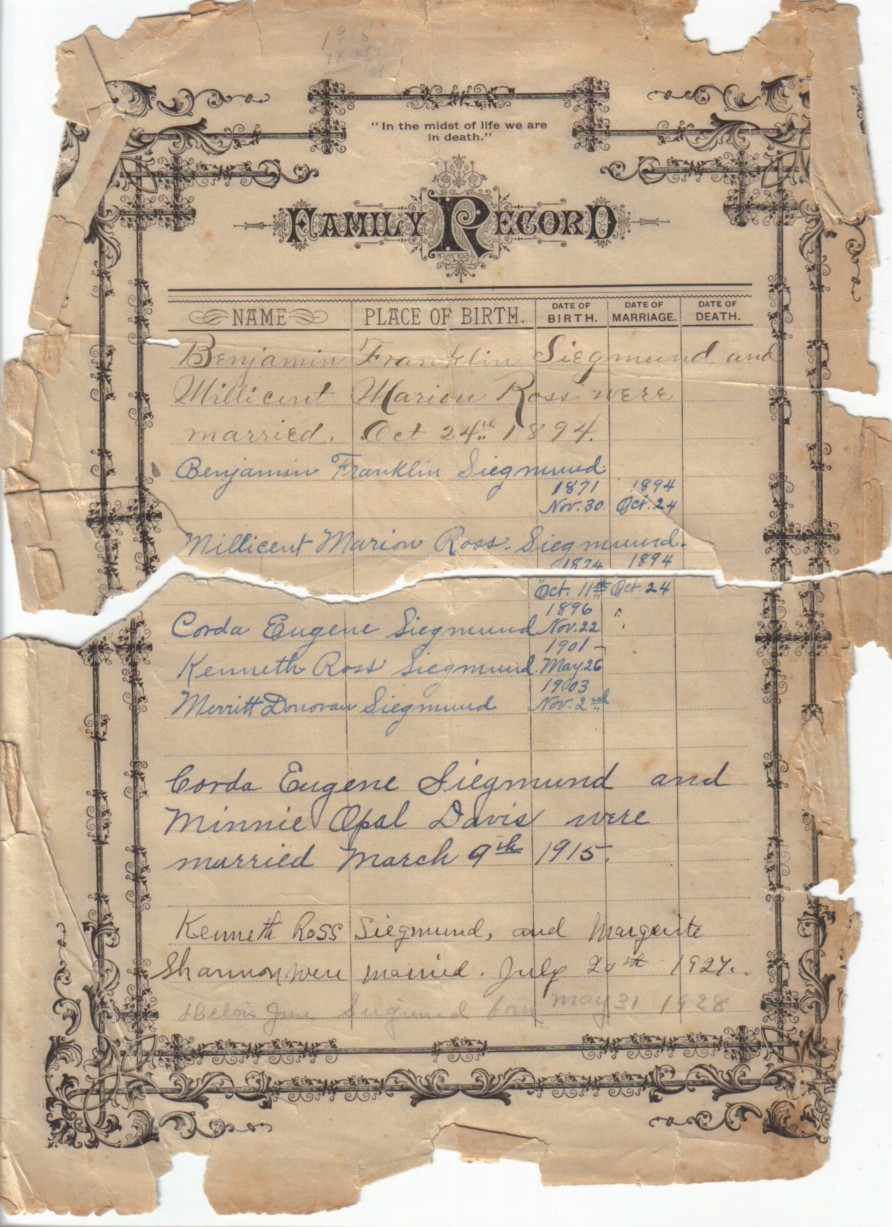 1915
"In the midst of life we are
in death."
FAMILY RECORD
NAME PLACE OF BIRTH. DATE OF BIRTH. DATE OF MARRIAGE. DATE OF DEATH.
Benjamin Franklin Siegmund and
Millicent Marion Ross were
married. Oct 24th 1894.
Benjamin Franklin Siegmund
1871 1894
Nov. 30 Oct. 24
Millicent Marion Ross Siegmund.
1874 1894
Oct. 11th Oct. 24
1896
Corda Eugene Siegmund Nov. 22
1901
Kenneth Ross Siegmund May 26
1903
Merritt Donovan Siegmund Nov. 2nd
Corda Eugene Siegmund and
Minnie Opal Davis were
married March 9th 1915.
Kenneth Ross Siegmund, and Margerite
Shannon were married. July 1927.
Delois June Siegmund born May 31 1928